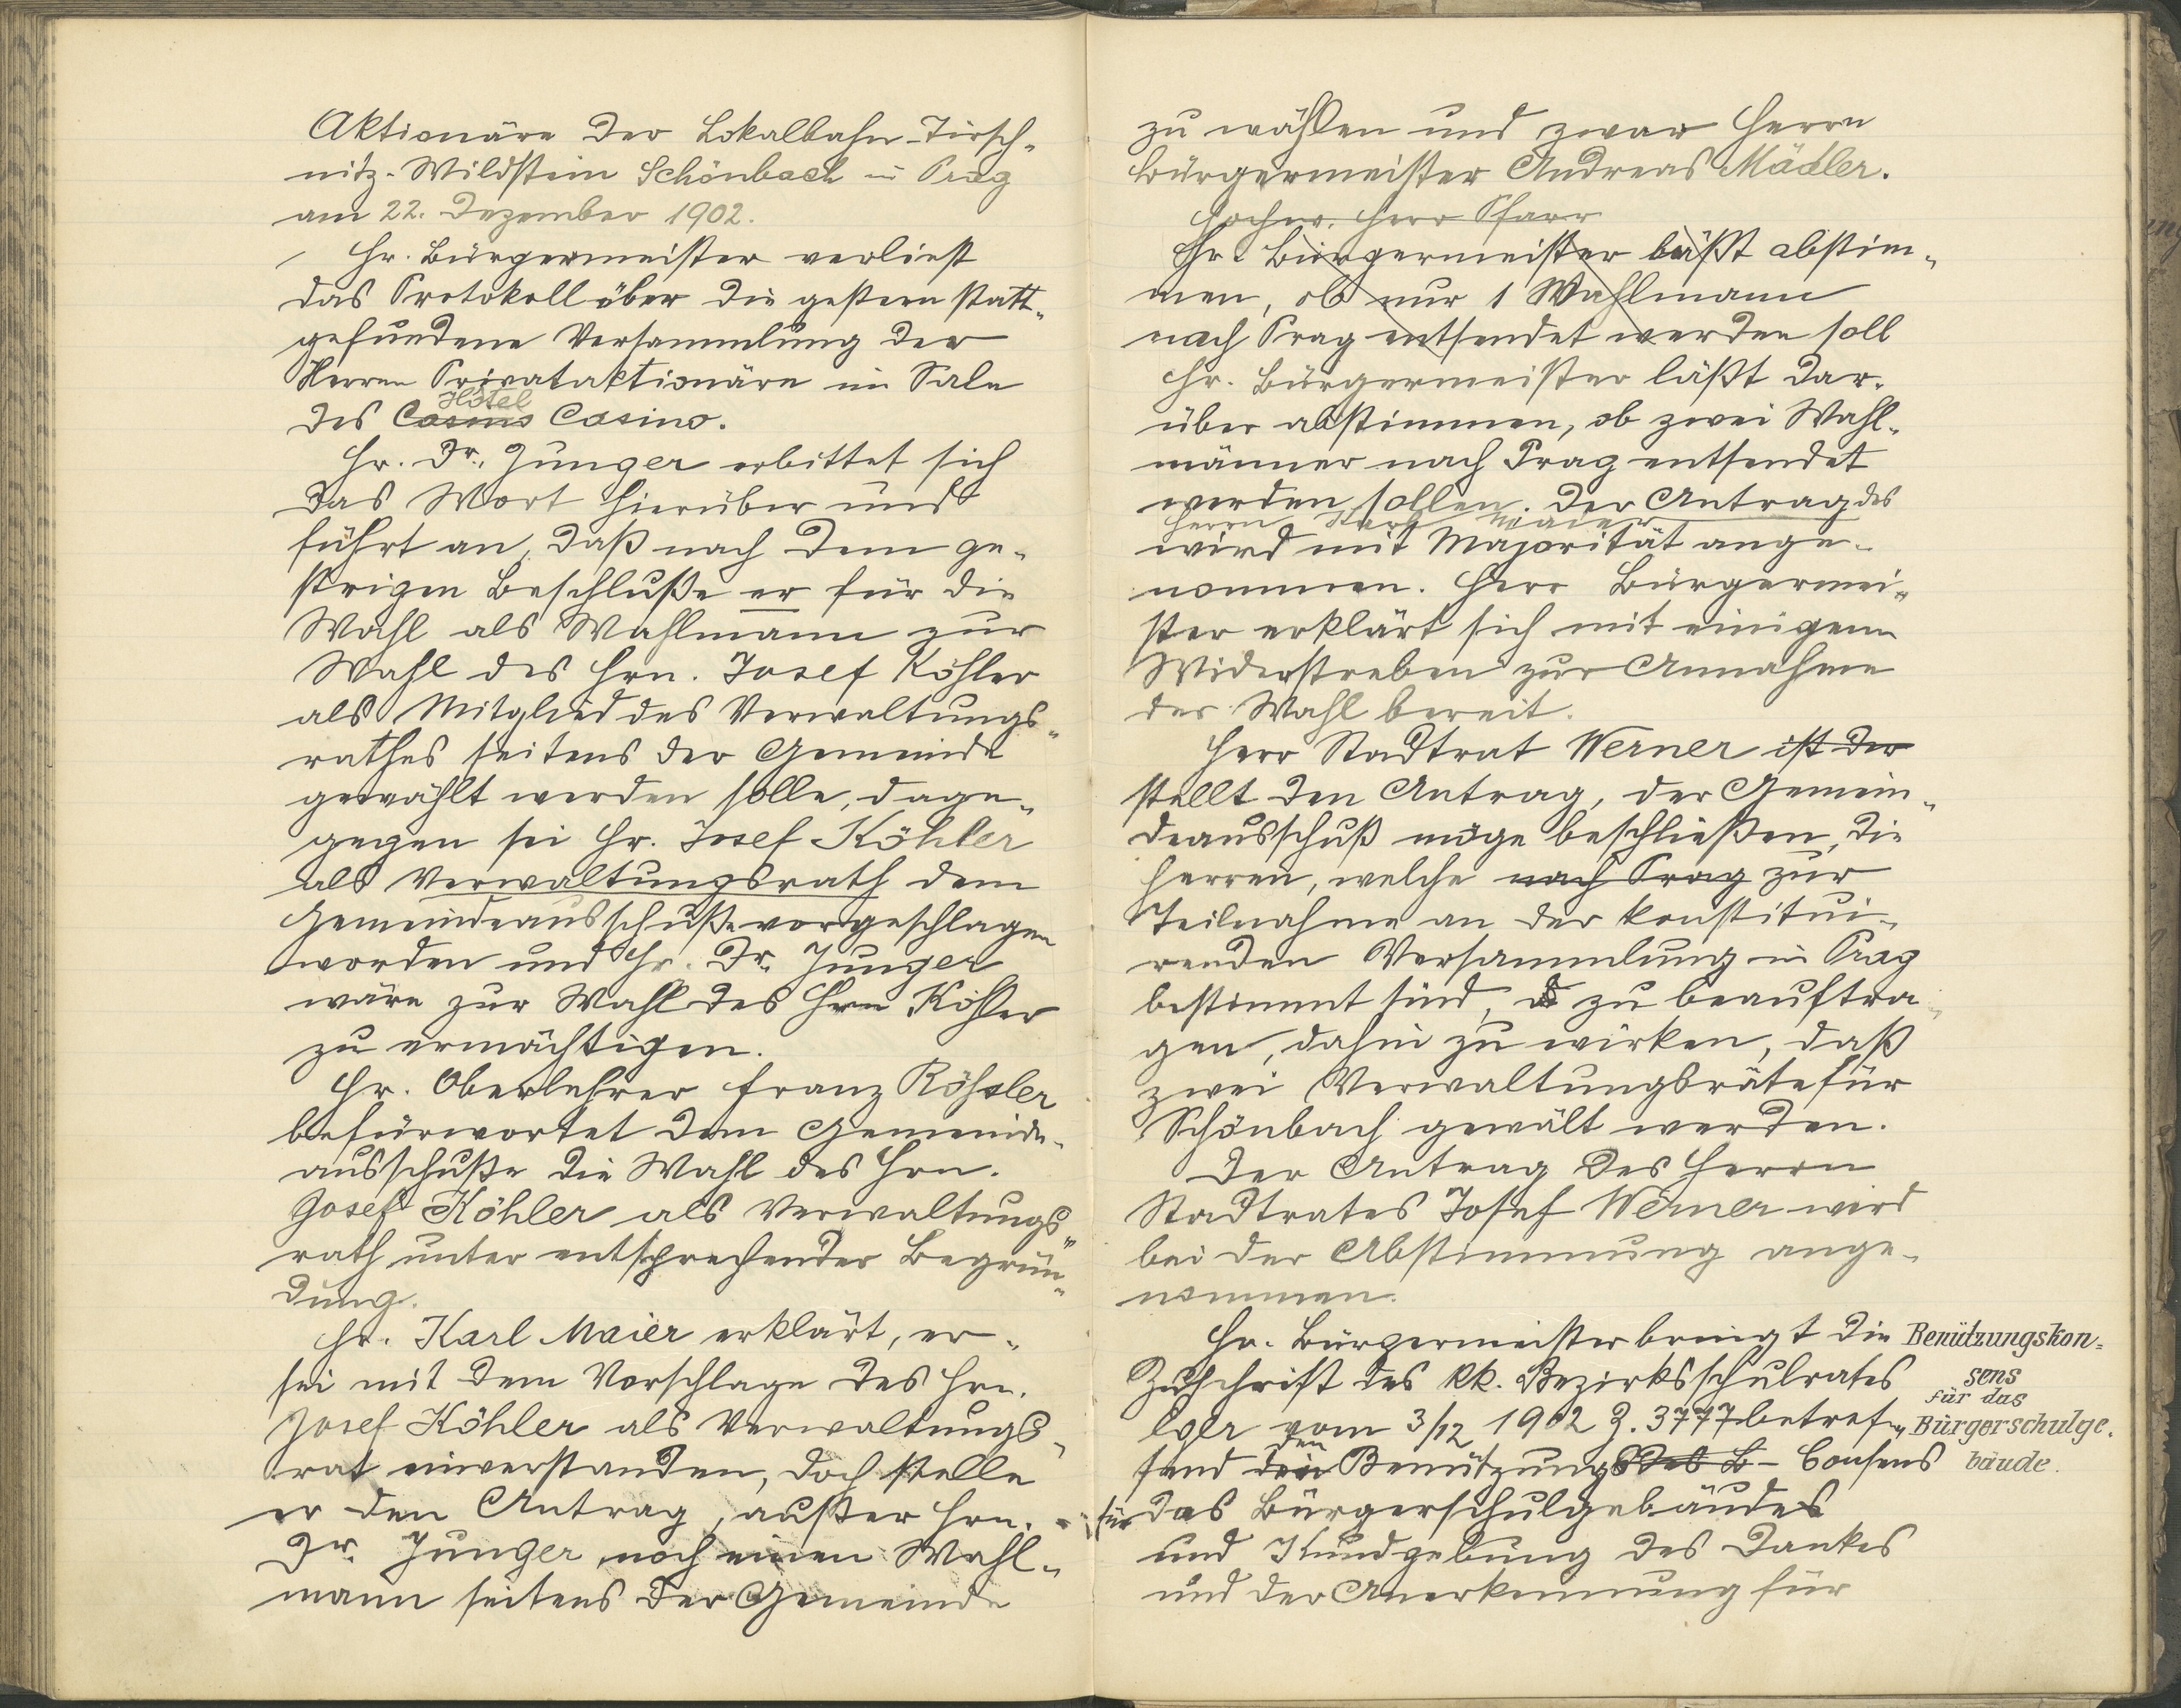 Aktionäre der Lokalbahn-Tirsch-
nitz-Wildstein Schönbach in Prag
am 22. Dezember 1902.
Hr. Bürgermeister verliest
das Protokoll über die gestern statt-
gefundene Versammlung der
Herren Privataktionäre im Sale
Hôtel
des Casino Casino.
Hr. Dr. Junger erbittet sich
das Wort hierüber und
führt an, daß nach dem ge-
strigen Beschluße er für die
Wahl als Wahlmann zur
Wahl des Hrn. Josef Köhler
als Mitglied des Verwaltungs-
rathes seitens der Gemeinde
gewählt werden solle, dage-
gegen sei Hr. Josef Köhler
als Verwaltungsrath dem
Gemeindeausschuße vorgeschlagen
worden und Hr. Dr. Junger
wäre zur Wahl des Hrn Köhler
zu ermächtigen.
Hr. Oberlehrer Franz Rößler
befürwortet dem Gemeinde-
ausschuße die Wahl des Hrn.
Josef Köhler als Verwaltungs-
rath unter entsprechender Begrün-
dung.
Hr. Karl Maier erklärt, er
sei mit dem Vorschlage des Hrn.
Josef Köhler als Verwaltungs-
rat einverstanden, doch stelle
er den Antrag, außer Hrn.
Dr. Junger noch einen Wahl-
mann seitens der Gemeinde
zu wählen und zwar Herrn
Bürgermeister Andreas Mädler.
Hochw. Herr Pfarr
Hr. Bürgermeister läßt abstim-
men, ob nur 1 Wahlmann
nach Prag entsendet werden soll
Hr. Bürgermeister läßt dar-
über abstimmen, ob zwei Wahl-
männer nach Prag entsendet
werden sollen. Der Antrag des
Herrn Karl Maier
wird mit Majorität ange-
nommen. Herr Bürgermei-
ster erklärt sich mit einigem
Widerstreben zur Annahme
der Wahl bereit.
Herr Stadtrat Werner ist der
stellt den Antrag, der Gemein-
deausschuß möge beschließen, die
Herren, welche nach Prag zur
Teilnahme an der konstitui-
renden Versammlung in Prag
bestimmt sind, zu beauftra-
gen, dahin zu wirken, daß
zwei Verwaltungsräte für
Schönbach gewält werden.
Der Antrag des Herrn
Stadtrates Josef Werner wird
bei der Abstimmung ange-
nommen.
Hr. Bürgermeister bringt die
Zuschrift des kk. Bezirksschulrates
Eger vom 3/12 1902 Z. 3777 betref-
den
fend die Benützungs des B- Consens
für das Bürgerschulgebäudes
und Kundgebung des Dankes
und der Anerkennung für
Benützungskon-
sens
für das
Bürgerschulge-
bäude.